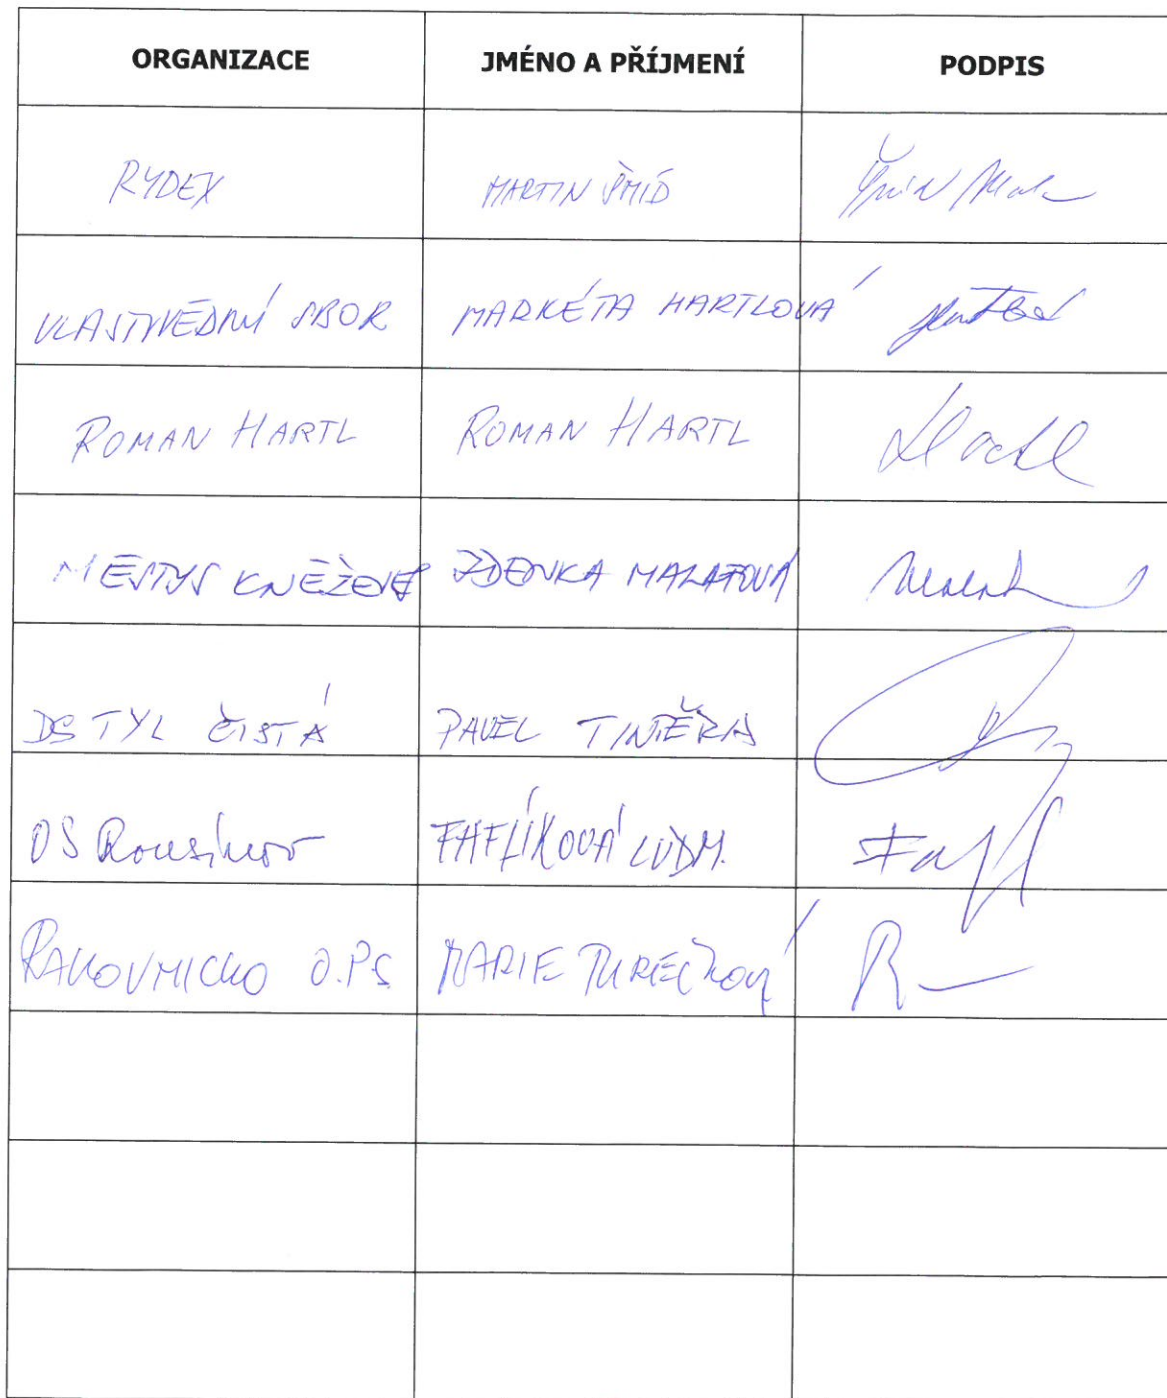 ORGANIZACE JMÉNO A PŘÍJMENÍ PODPIS
RYDEX MARTIN ŠMÍD
VLASTIVĚDNÝ SBOR MARKÉTA HARTLOVÁ
ROMAN HARTL ROMAN HARTL Hartl
MĚSTYS KNĚŽEVES ZDENKA MALATOVÁ
DS TYL ČISTÁ PAVEL TINTĚRA
OS Rousínov FAFLÍKOVÁ LUDM.
RAKOVNICKO O.P.S MARIE TUREČKOVÁ